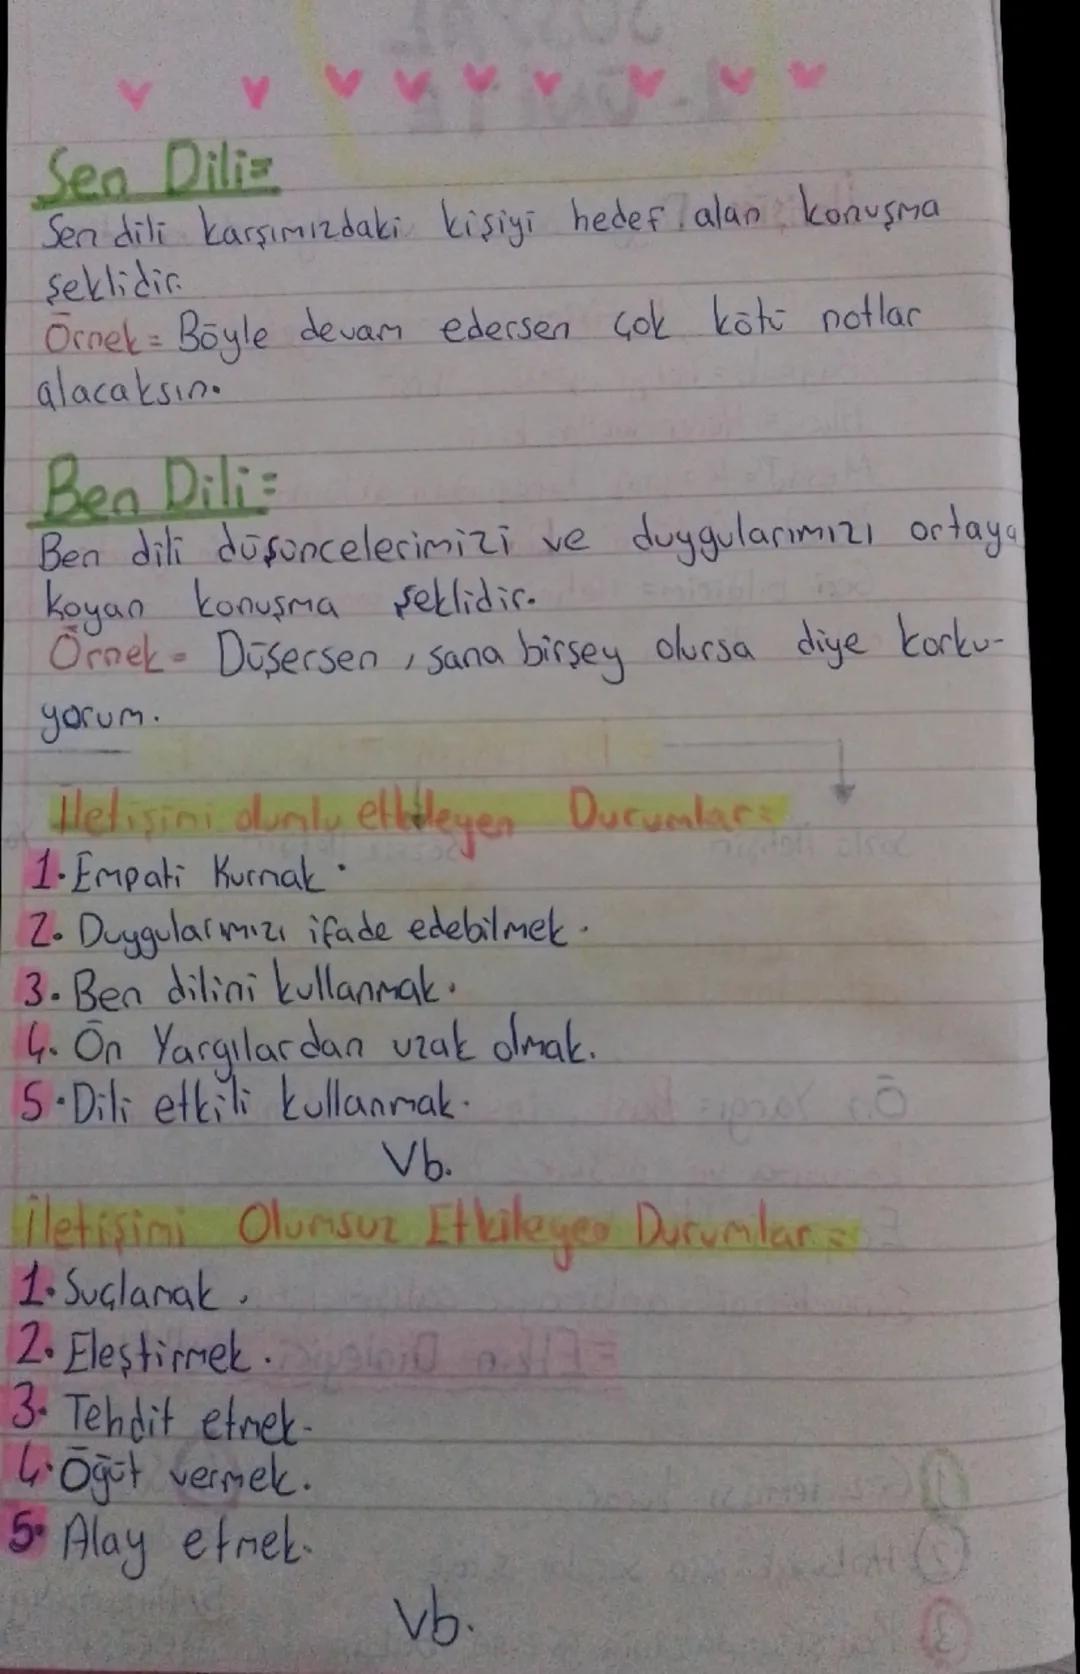 Sen Dili=
Sen dili karşımızdaki kişiyi hedef alan konuşma
şeklidir.
Örnek= Böyle devam edersen çok kötü notlar
alacaksın.
Ben Dili=
Ben dili düşüncelerimizi ve duygularımızı ortaya
koyan konuşma şeklidir.
Örnek= Düşersen, sana birşey olursa diye korku-
yorum.
İletişini olumlu etkileyen Durumlar=
1. Empati Kurmak.
2. Duygularımızı ifade edebilmek.
3. Ben dilini kullanmak.
4. Ön Yargılardan uzak olmak.
5. Dili etkili kullanmak.
Vb.
İletişimi Olumsuz Etkileyen Durumlar=
1. Suçlamak.
2. Eleştirmek.
3. Tehdit etmek.
4. Öğüt vermek.
5. Alay etmek.
vb.